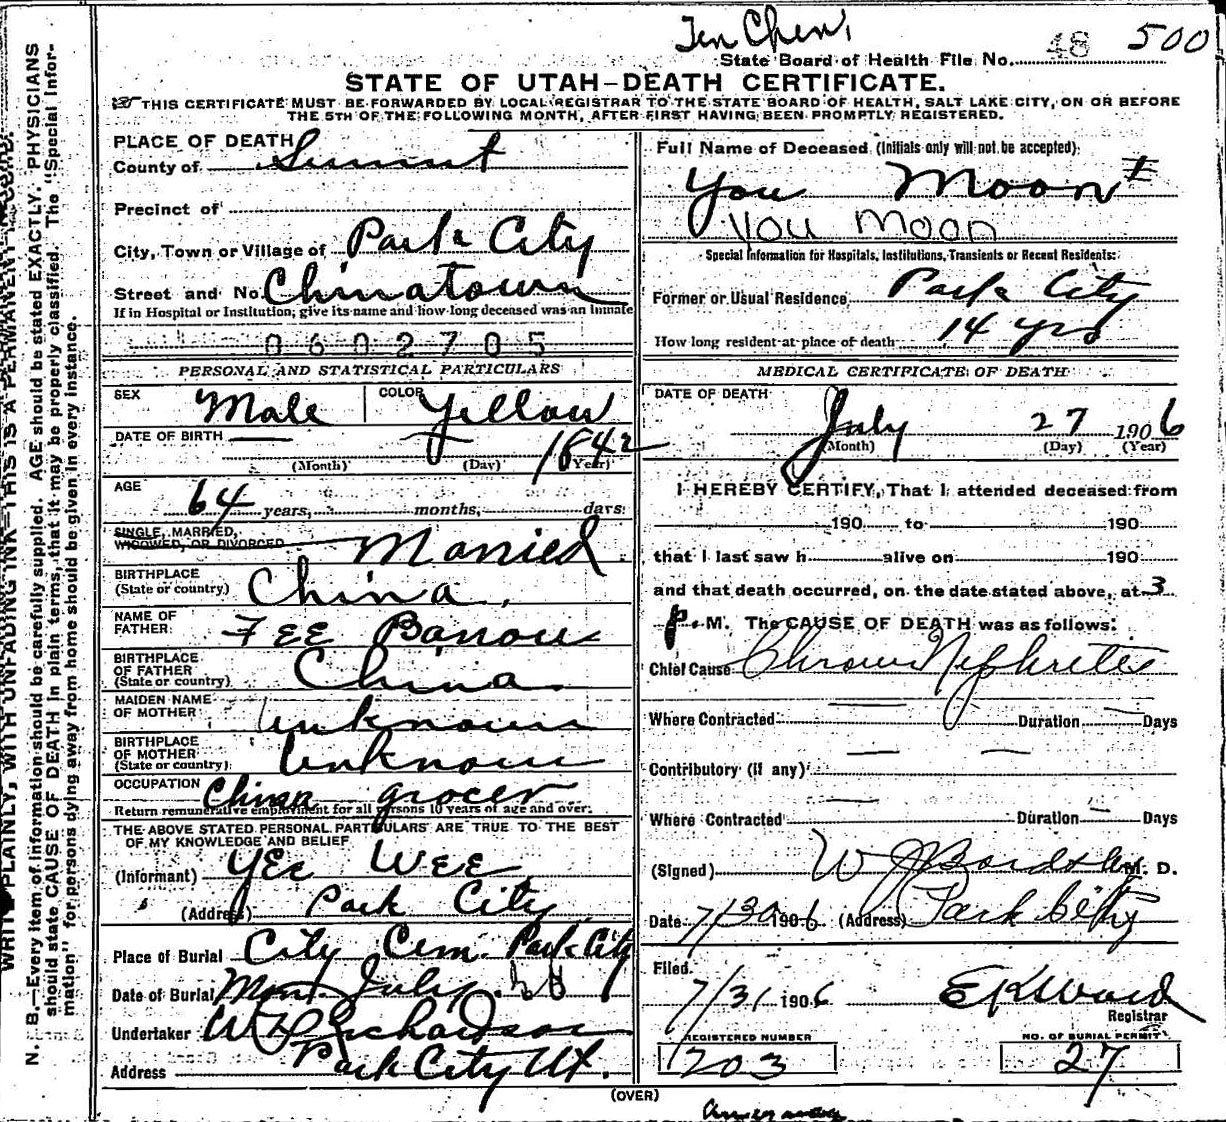 48 500
State Board of Health File No.
STATE OF UTAH—DEATH CERTIFICATE.
THIS CERTIFICATE MUST BE FORWARDED BY LOCAL REGISTRAR TO THE STATE BOARD OF HEALTH, SALT LAKE CITY, ON OR BEFORE
THE 5TH OF THE FOLLOWING MONTH, AFTER FIRST HAVING BEEN PROMPTLY REGISTERED.
PLACE OF DEATH
County of Summit
Precinct of
City, Town or Village of Park City
Street and No. Chinatown
If in Hospital or Institution, give its name and how long deceased was an inmate
0602705
PERSONAL AND STATISTICAL PARTICULARS
SEX Male COLOR Yellow
DATE OF BIRTH 1842
(Month) (Day) (Year)
AGE 64 years, months, days
SINGLE, MARRIED,
WIDOWED, OR DIVORCED Married
BIRTHPLACE
(State or country) China
NAME OF
FATHER
BIRTHPLACE
OF FATHER
(State or country) China
MAIDEN NAME
OF MOTHER Unknown
BIRTHPLACE
OF MOTHER
(State or country) Unknown
OCCUPATION grocer
Return remunerative employment for all persons 10 years of age and over.
THE ABOVE STATED PERSONAL PARTICULARS ARE TRUE TO THE BEST
OF MY KNOWLEDGE AND BELIEF
(Informant) Yee Wee
(Address) Park City
Place of Burial City Cem. Park City
Date of Burial Mon. July
Undertaker Richardson
Address Park City Ut.
Full Name of Deceased (Initials only will not be accepted):
You Moon
You Moon
Special Information for Hospitals, Institutions, Transients or Recent Residents:
Former or Usual Residence Park City
How long resident at place of death 14 yrs
MEDICAL CERTIFICATE OF DEATH
DATE OF DEATH
July 27 1906
(Month) (Day) (Year)
I HEREBY CERTIFY, That I attended deceased from
190 to 190
that I last saw h alive on 190
and that death occurred, on the date stated above, at 3
P. M. The CAUSE OF DEATH was as follows:
Chief Cause
Where Contracted Duration Days
Contributory (if any)
Where Contracted Duration Days
(Signed) M. D.
Date 7/30 1906 (Address) Park City
Filed
7/31 1906 EKWard
Registrar
REGISTERED NUMBER NO. OF BURIAL PERMIT
203 27
(OVER)
WRITE PLAINLY, WITH UNFADING INK—THIS IS A PERMANENT RECORD.
N. B.—Every item of information should be carefully supplied. AGE should be stated EXACTLY. PHYSICIANS
should state CAUSE OF DEATH in plain terms, that it may be properly classified. The "Special Infor-
mation" for persons dying away from home should be given in every instance.